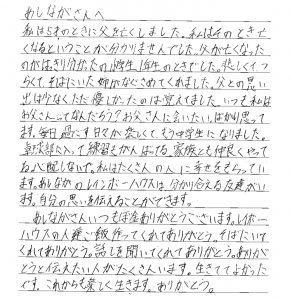 あしながさんへ
私は5才のときに父を亡くしました。私はそのとき亡
くなるということが分かりませんでした。父が亡くなった
のがはっきり分かったのは小学生1年生のときでした。悲しくて、つ
らくて、そばにいた姉がなぐさめてくれました。父との思い
出は少なくただ優しかったのは覚えてました。いつも私は
お父さんってなんだろう?お父さんに会いたい。ばかり思って
ます。毎日過ごす日々が楽しくて、もう中学生になりました。
卓球部に入って練習もがんばってる。家族とも仲良くやって
る。心配しないで。私はたくさんの人に幸せをもらってい
ます。あしながのレインボーハウスは分かり合える友達がい
ます。自分の思いを伝えることができます。
あしながさんいつも応援ありがとうございます。レインボー
ハウスの人達ご飯作ってくれてありがとう。そばにいて
くれてありがとう。話しを聞いてくれてありがとう。ありが
とうと伝えたい人がたくさんいます。生きててよかった
です。これからも楽しく生きます。ありがとう。